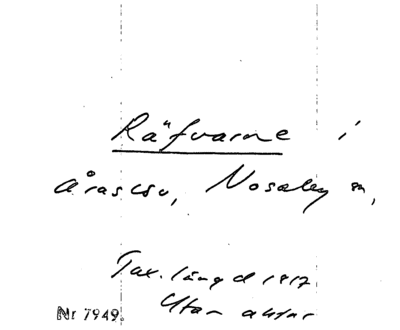 Räfvarne i
Åraslöv, Nosaby sn,
Tax. längd 1817
Utan antur
Nr 7949.